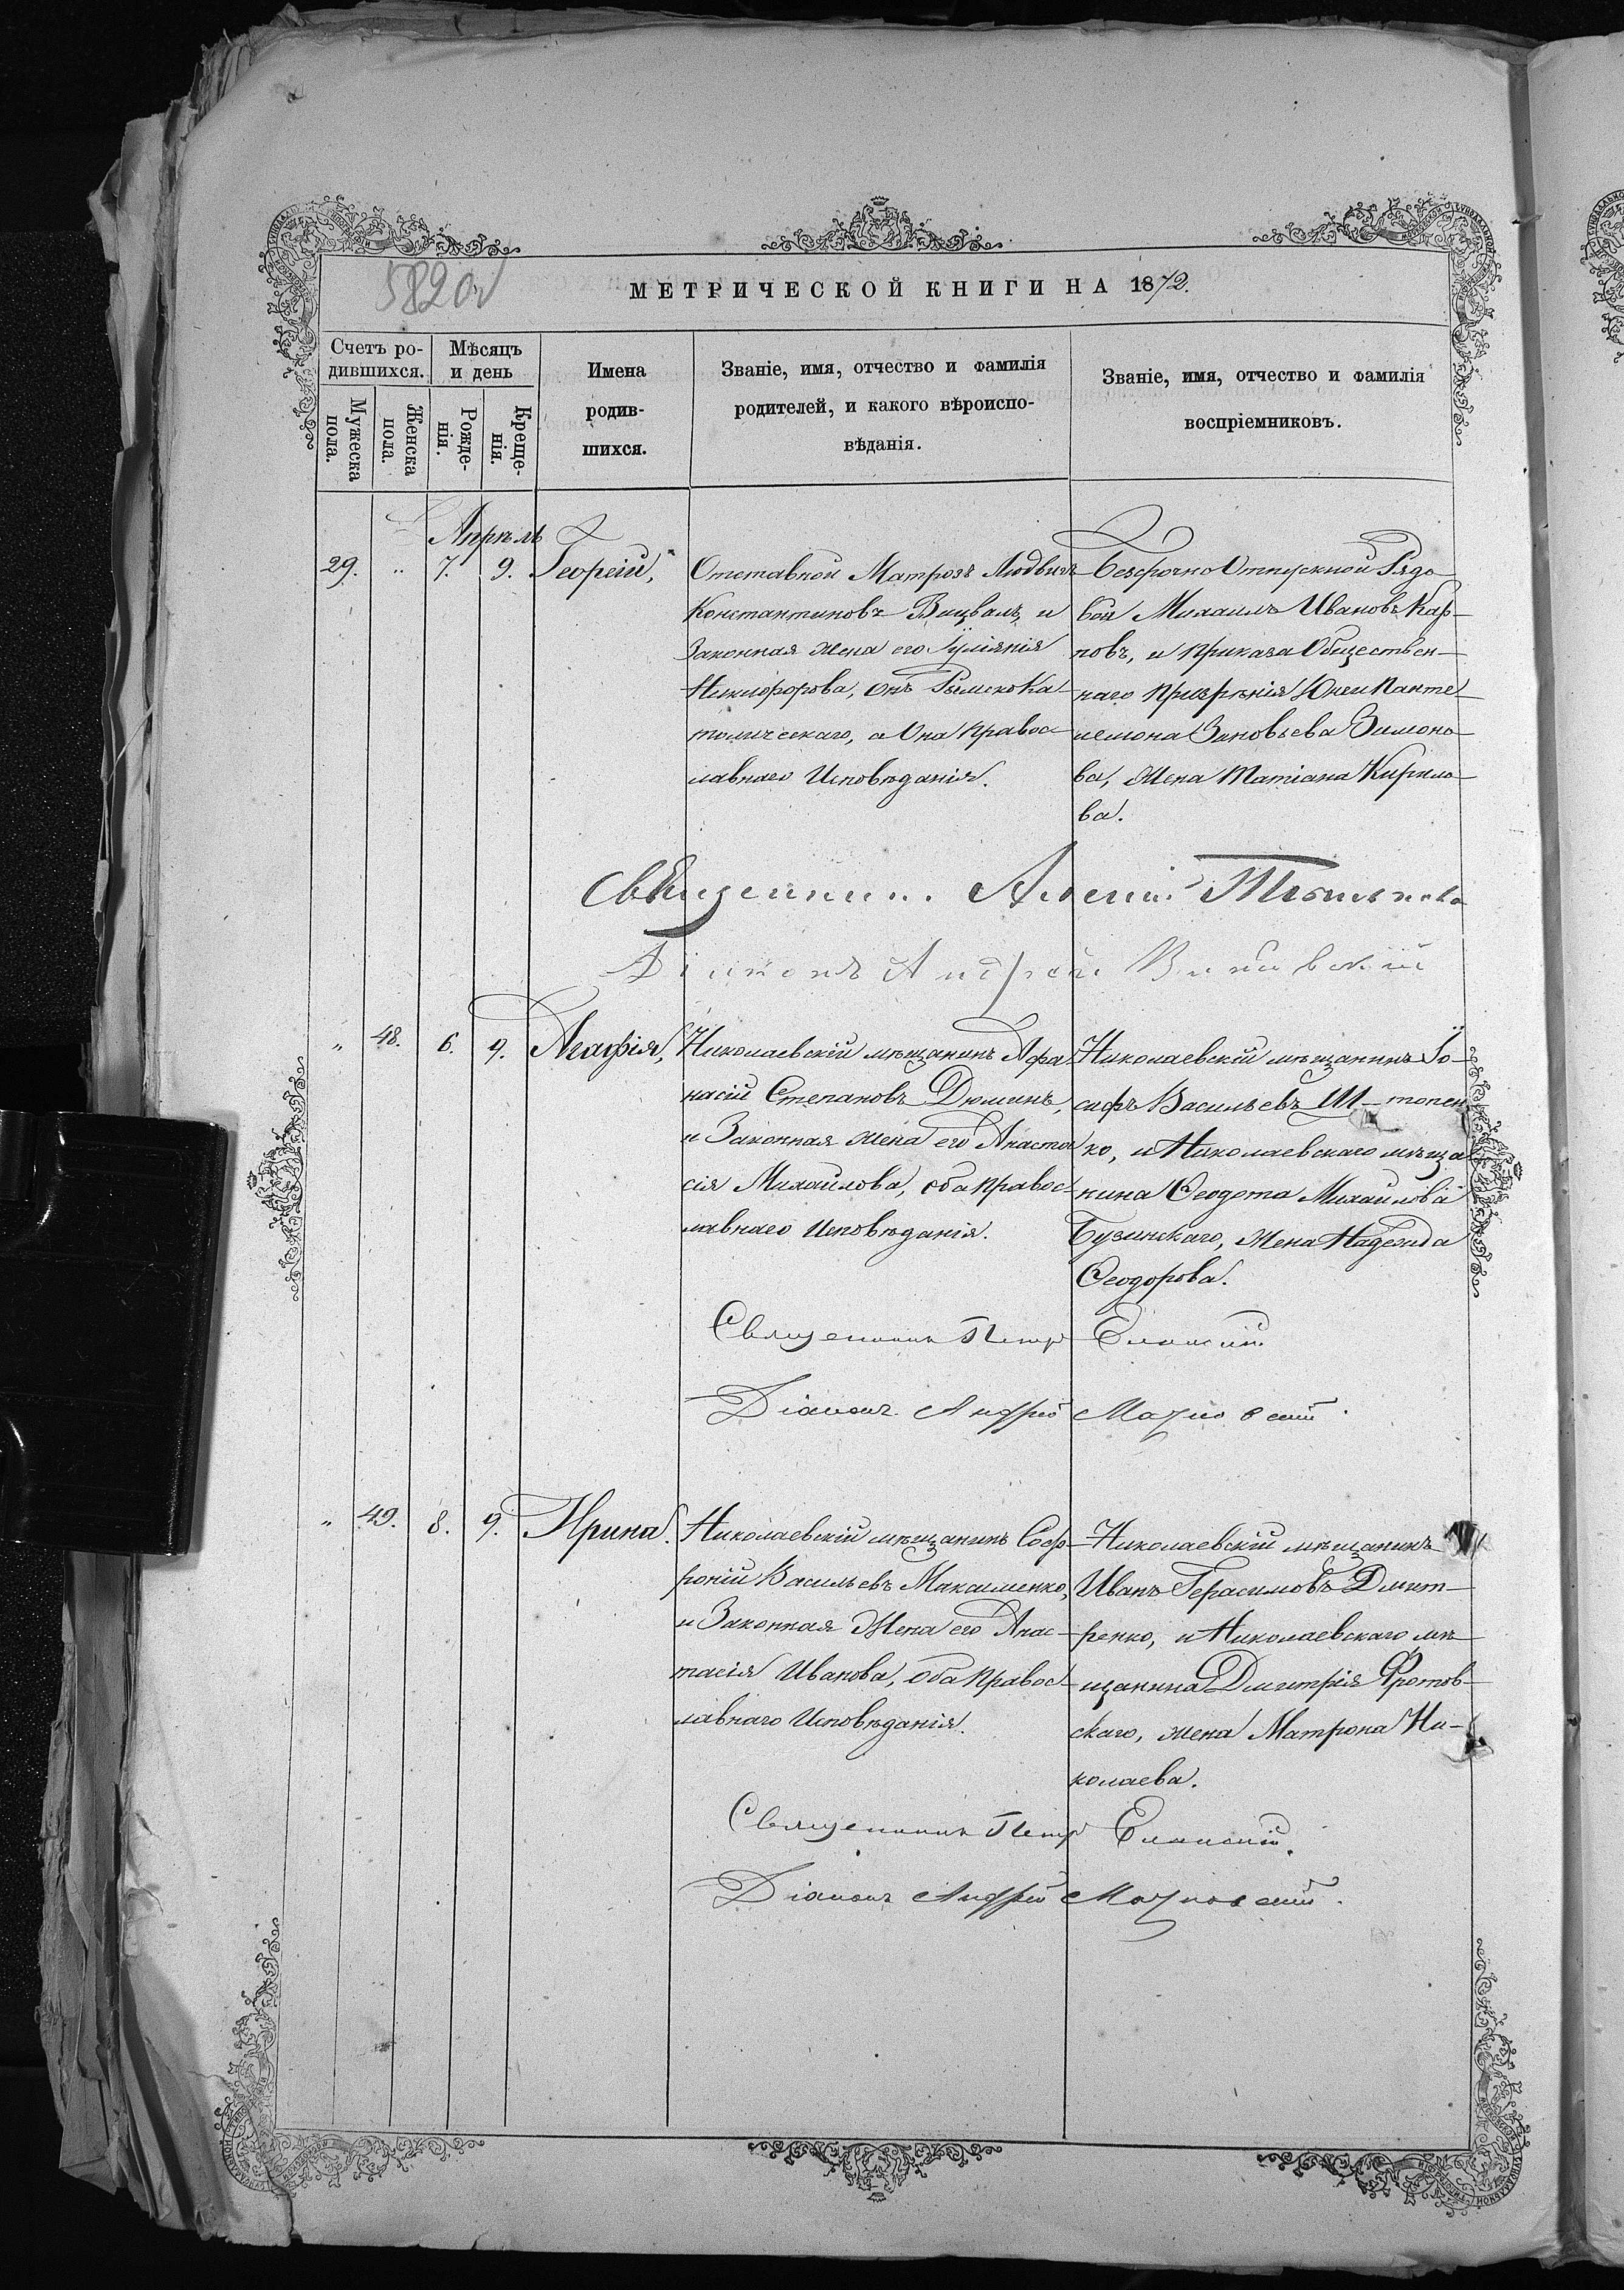 582 об
МЕТРИЧЕСКОЙ КНИГИ НА 1872.
Счетъ ро-
дившихся.
Мѣсяцъ
и день
Имена
родив-
шихся.
Званіе, имя, отчество и фамилія
родителей, и какого вѣроиспо-
вѣданія.
Званіе, имя, отчество и фамилія
воспріемниковъ.
Мужеска
пола.
Женска
пола.
Рожде-
нія.
Креще-
нія.
Апрѣль
29. " 7. 9. Георгій,
Отставной Матрозъ Людвигъ
Константиновъ и
Законная жена его Іуліянія
Никифорова, онъ РымскоКа-
толическаго, а Она Правос-
лавнаго Исповѣданія.
Безсрочно Отпускной Рядо-
вой Михаилъ Ивановъ Кар-
повъ, и Приказа Обществен-
наго Призрѣнія Панте-
леимона Зиновьева Зимоно-
ва, Жена Татіана Кирило-
ва.
Священник. Алексій
Діаконъ Андрей
" 48. 6. 9. Агафія,
Николаевскій мѣщанинъ Афа-
насій Степановъ Дюминъ,
и Законная жена его Анаста-
сія Михайлова, оба Правос-
лавнаго Исповѣданія.
Николаевскій мѣщанинъ Іо-
сифъ Васильевъ Ш-топен-
ко, и Николаевскаго мѣща-
нина Ѳеодота Михайлова
Бузинскаго, Жена Надежда
Ѳеодорова.
Священникъ Петр Еланскій.
Діаконъ Андрей
" 49. 8. 9. Ирина.
Николаевскій мѣщанинъ Соф-
роній Васильевъ Максименко,
и Законная Жена его Анас-
тасія Иванова, Оба Правос-
лавнаго Исповѣданія.
Николаевскій мѣщанинъ
Иванъ Герасимовъ Дмит-
ренко, и Николаевскаго мѣ-
щанина Дмитрія Фротов-
скаго, жена Матрона Ни-
колаева.
Священникъ Петр Еланскій.
Діаконъ Андрей